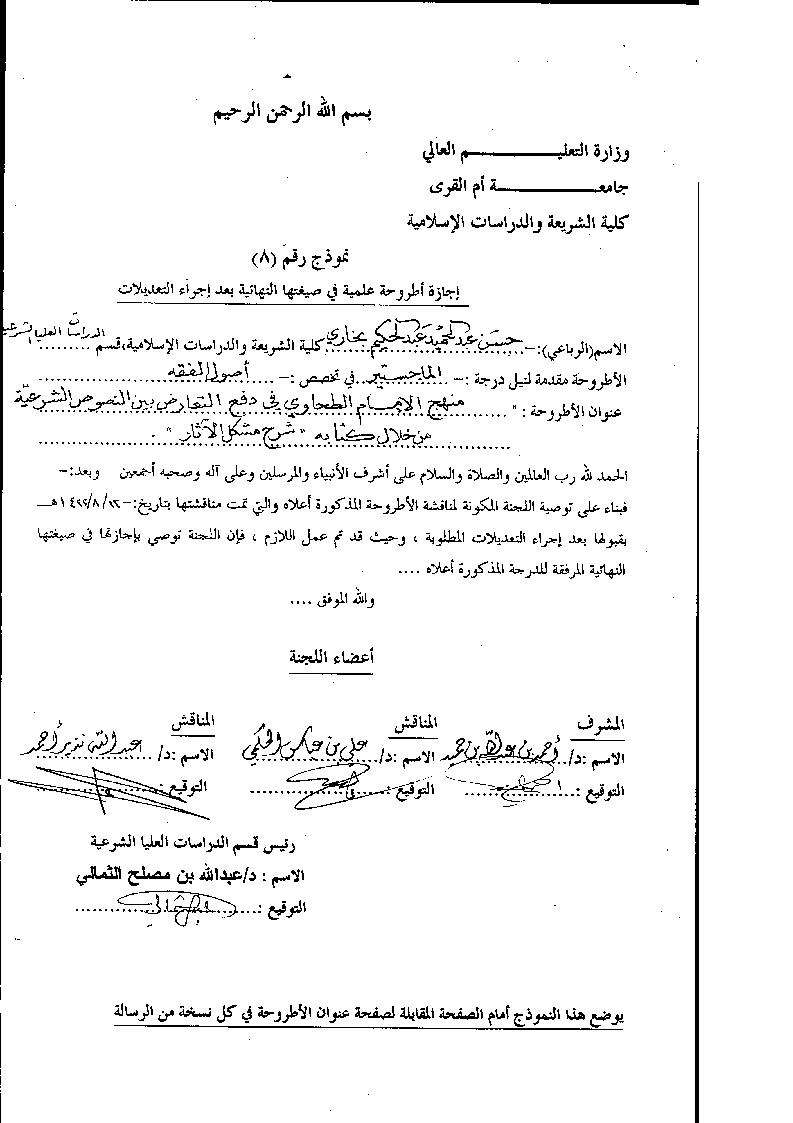 بسم الله الرحمن الرحيم
وزارة التعليـــــــــم العالي
جامعـــــــــة أم القرى
كلية الشريعة والدراسات الإسلامية
نموذج رقم (٨)
إجازة أطروحة علمية في صيغتها النهائية بعد إجراء التعديلات
الاسم(الرباعي):- حسن عبد الحميد عبد الحكيم بخاري كلية الشريعة والدراسات الإسلامية، قسم الدراسات العليا الشرعية
الأطروحة مقدمة لنيل درجة :- الماجستير في تخصص :- أصول الفقه
عنوان الأطروحة : " منهج الإمام الطحاوي في دفع التعارض بين النصوص الشرعية
من خلال كتابه "شرح مشكل الآثار" .
الحمد لله رب العالمين والصلاة والسلام على أشرف الأنبياء والمرسلين وعلى آله وصحبه أجمعين وبعد:-
فبناء على توصية اللجنة المكونة لمناقشة الأطروحة المذكورة أعلاه والتي تمت مناقشتها بتاريخ:- /٨/١٤٢٢هـ
بقبولها بعد إجراء التعديلات المطلوبة ، وحيث قد تم عمل اللازم ، فإن اللجنة توصي بإجازتها في صيغتها
النهائية المرفقة للدرجة المذكورة أعلاه ....
والله الموفق ....
أعضاء اللجنة
المشرف المناقش المناقش
الاسم :د/ أحمد بن عبدالله بن حميد الاسم :د/ علي بن عباس الحكمي الاسم :د/ عبدالله نذير أحمد
التوقيع : التوقيع : التوقيع :
رئيس قسم الدراسات العليا الشرعية
الاسم : د/عبدالله بن مصلح الثمالي
التوقيع :
يوضع هذا النموذج أمام الصفحة المقابلة لصفحة عنوان الأطروحة في كل نسخة من الرسالة